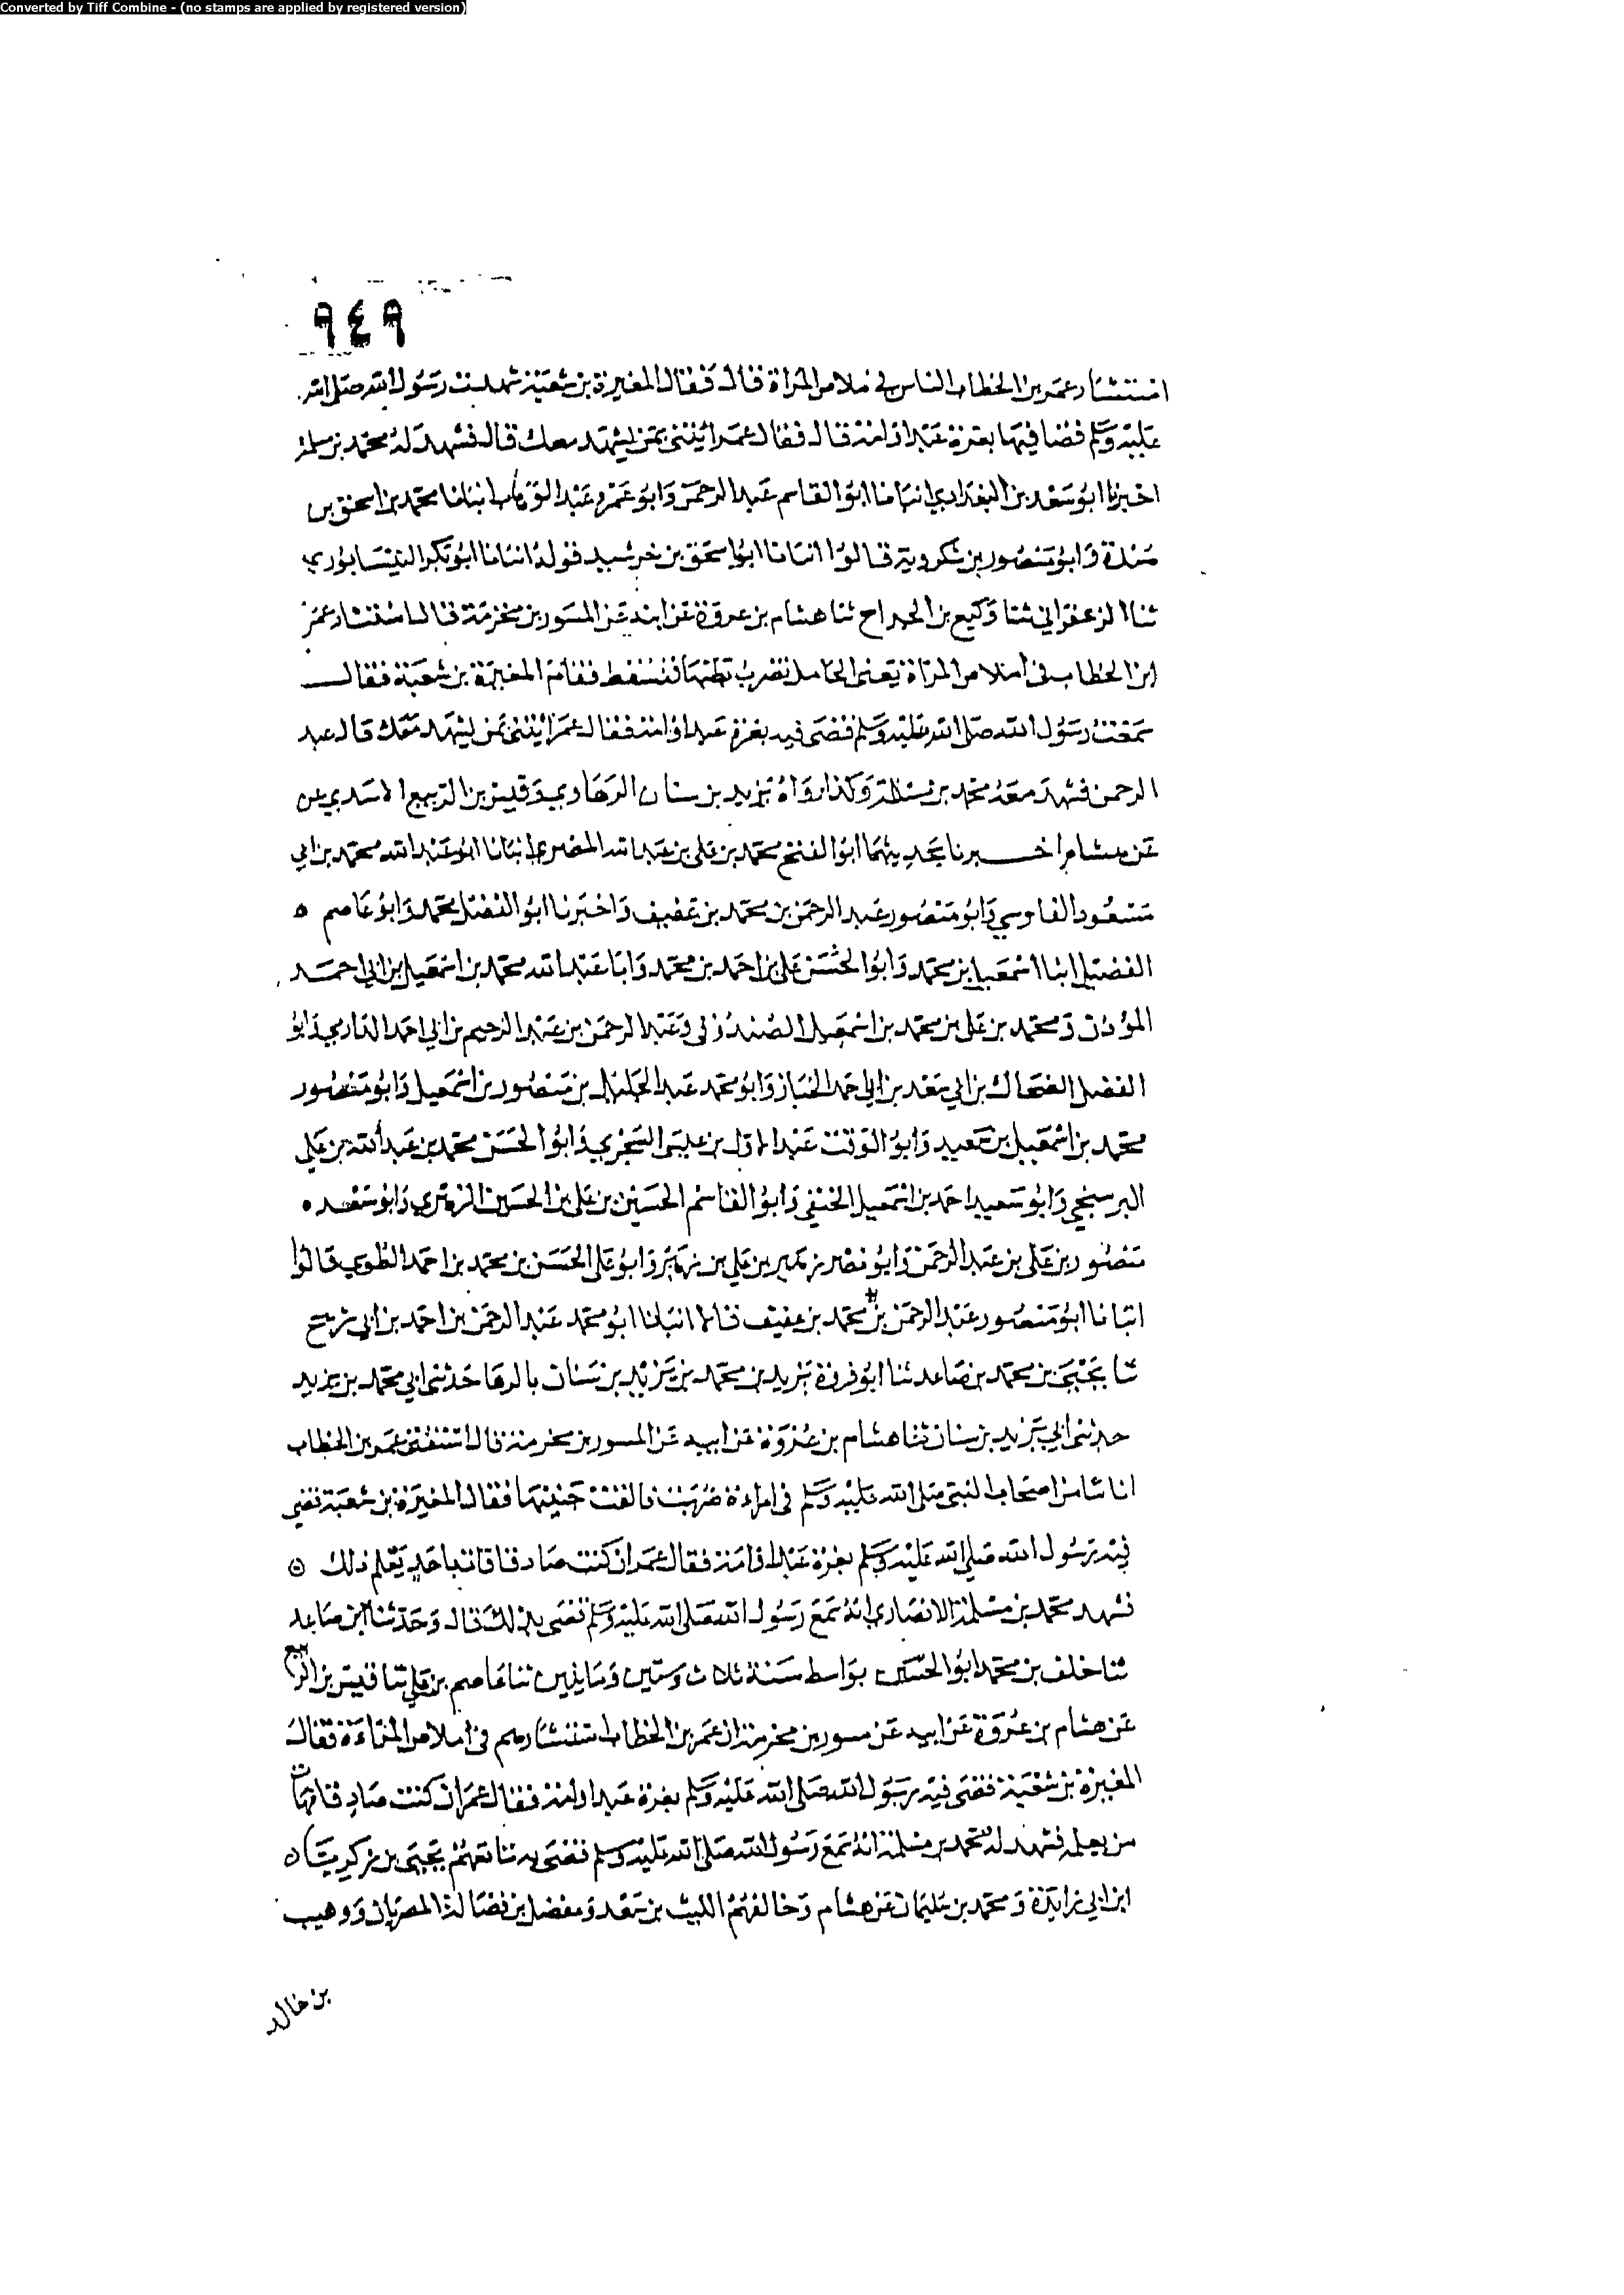 Converted by Tiff Combine - (no stamps are applied by registered version)
٩٤٩
استشار عمر بن الخطاب الناس في ملاص المراة قال فقال المغيرة بن شعبة شهدت رسول الله صلى الله
عليه وسلم قضا فيها بغرة عبد او امة قال فقال عمر ائتني بمن يشهد معك قال فشهد له محمد بن مسلمة
اخبرنا ابو سعد بن البغدادي انبانا ابو القاسم عبد الرحمن وابو عمرو عبد الوهاب ابنانا محمد بن اسحق بن
مندة وابو منصور بن شكروية قالوا انبانا ابو اسحق بن خرشيد قوله انبانا ابو بكر النيسابوري
ثنا الزعفراني ثنا وكيع بن الجراح ثنا هشام بن عروة عن ابيه عن المسور بن مخرمة قال استشار عمر
ابن الخطاب في املاص المراة يعني الحامل تضرب بطنها فتسقط فقام المغيرة بن شعبة فقال
سمعت رسول الله صلى الله عليه وسلم قضى فيه بغرة عبد او امة فقال عمر ائتني بمن يشهد معك قال عبد
الرحمن فشهد معه محمد بن مسلمة وكذا رواه يزيد بن سنان الرهاوي وقيس بن الربيع الاسدي عن
عن هشام اخبرنا بحديثهما ابو الفتح محمد بن علي بن عبد الله المصري انبانا ابو عبد الله محمد بن ابي
مسعود الفارسي وابو منصور عبد الرحمن بن محمد بن عفيف واخبرنا ابو الفضل محمد وابو عاصم ه
الفضيل ابنا اسمعيل بن محمد وابو الحسن علي بن احمد بن محمد وابا عبد الله محمد بن اسمعيل بن ابي احمد
المؤذن ومحمد بن علي بن محمد بن اسمعيل الصندوقي وعبد الرحمن بن عبد الرحيم بن ابي احمد الدارمي وابو
الفضل الضحاك بن ابي سعد بن ابي احمد الخباز وابو محمد عبد الجليل بن منصور بن اسمعيل وابو منصور
محمد بن اسمعيل بن سعيد وابو الوقت عبد الاول بن عيسى السجزي وابو الحسن محمد بن عبد الله بن علي
البوسنجي وابو سعيد احمد بن اسمعيل الحنفي وابو القاسم الحسين بن علي بن الحسين الزهري وابو سعد ه
منصور بن علي بن عبد الرحمن وابو نصر بن علي بن وابو علي الحسن بن محمد بن احمد قالوا
انبانا ابو منصور عبد الرحمن بن محمد بن عفيف قالا انبانا ابو محمد عبد الرحمن بن احمد بن ابي شريح
ثنا يحيى بن محمد بن صاعد ثنا ابو فروة يزيد بن محمد بن يزيد بن سنان بالرها حدثني ابي محمد بن يزيد
حدثني ابي يزيد بن سنان ثنا هشام بن عروة عن ابيه عن المسور بن مخرمة قال استفتى عمر بن الخطاب
اناسا من اصحاب النبي صلى الله عليه وسلم في امراة ضربت فالقت جنينها فقال المغيرة بن شعبة قضى
فيه رسول الله صلى الله عليه وسلم بغرة عبد او امة فقال عمر ان كنت صادقا فات باحد يعلم ذلك ه
فشهد محمد بن مسلمة الانصاري انه سمع رسول الله صلى الله عليه وسلم قضى بذلك قال وحدثنا ابن صاعد
ثنا خلف بن محمد ابو الحسين بواسط سنة ثلاث وستين ومايتين ثنا عاصم بن علي ثنا قيس بن الربيع
عن هشام بن عروة عن ابيه عن مسور بن مخرمة ان عمر بن الخطاب استشارهم في املاص المراة فقال
المغيرة بن شعبة قضى فيه رسول الله صلى الله عليه وسلم بغرة عبد او امة فقال عمر ان كنت صادقا فهات
من يعلم فشهد له محمد بن مسلمة انه سمع رسول الله صلى الله عليه وسلم قضى به تابعهم يحيى بن زكريا ه
ابن ابي زايدة ومحمد بن سليمان عن هشام وخالفهم الليث بن سعد ومفضل بن فضالة المصريان ووهيب
بن خالد